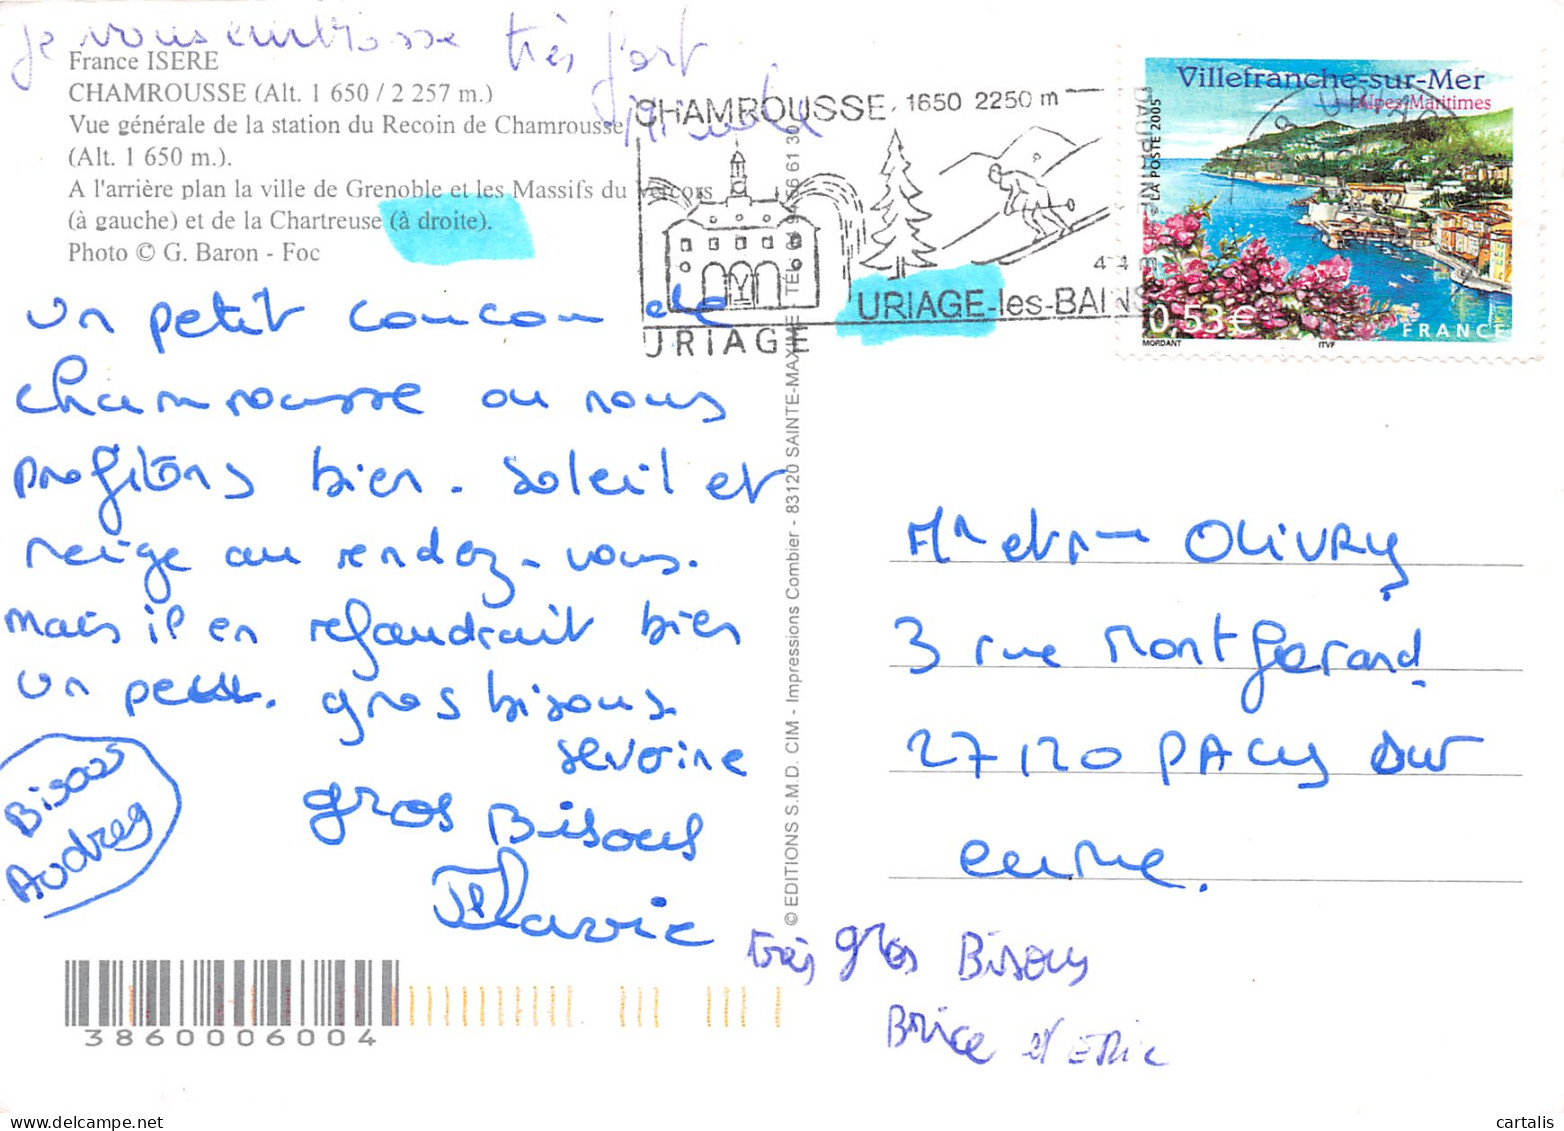 Je vous embrasse très fort
France ISERE
CHAMROUSSE (Alt. 1 650 / 2 257 m.)
Vue générale de la station du Recoin de Chamrousse
(Alt. 1 650 m.).
A l'arrière plan la ville de Grenoble et les Massifs du Vercors
(à gauche) et de la Chartreuse (à droite).
Photo © G. Baron - Foc
un petit coucou de
chamrousse ou nous
profitons bien. soleil et
neige au rendez-vous.
mais il en refaudrait bien
un peu. gros bisous
severine
gros Bisous
Flavie
Bisous
Audrey
3860006004
CHAMROUSSE 1650 2250 m
URIAGE-les-BAINS
URIAGE
© EDITIONS S.M.D. CIM - Impressions Combier - 83120 SAINTE-MAXIME TEL.
Villefranche-sur-Mer
Alpes-Maritimes
LA POSTE 2005
0,53€
FRANCE
MORDANT
ITVF
Mr et Mme OLIVRY
3 rue Montgerand
27120 PACY sur
eure.
très gros Bisous
Brice et Eric
cartalis
www.cartalis.com